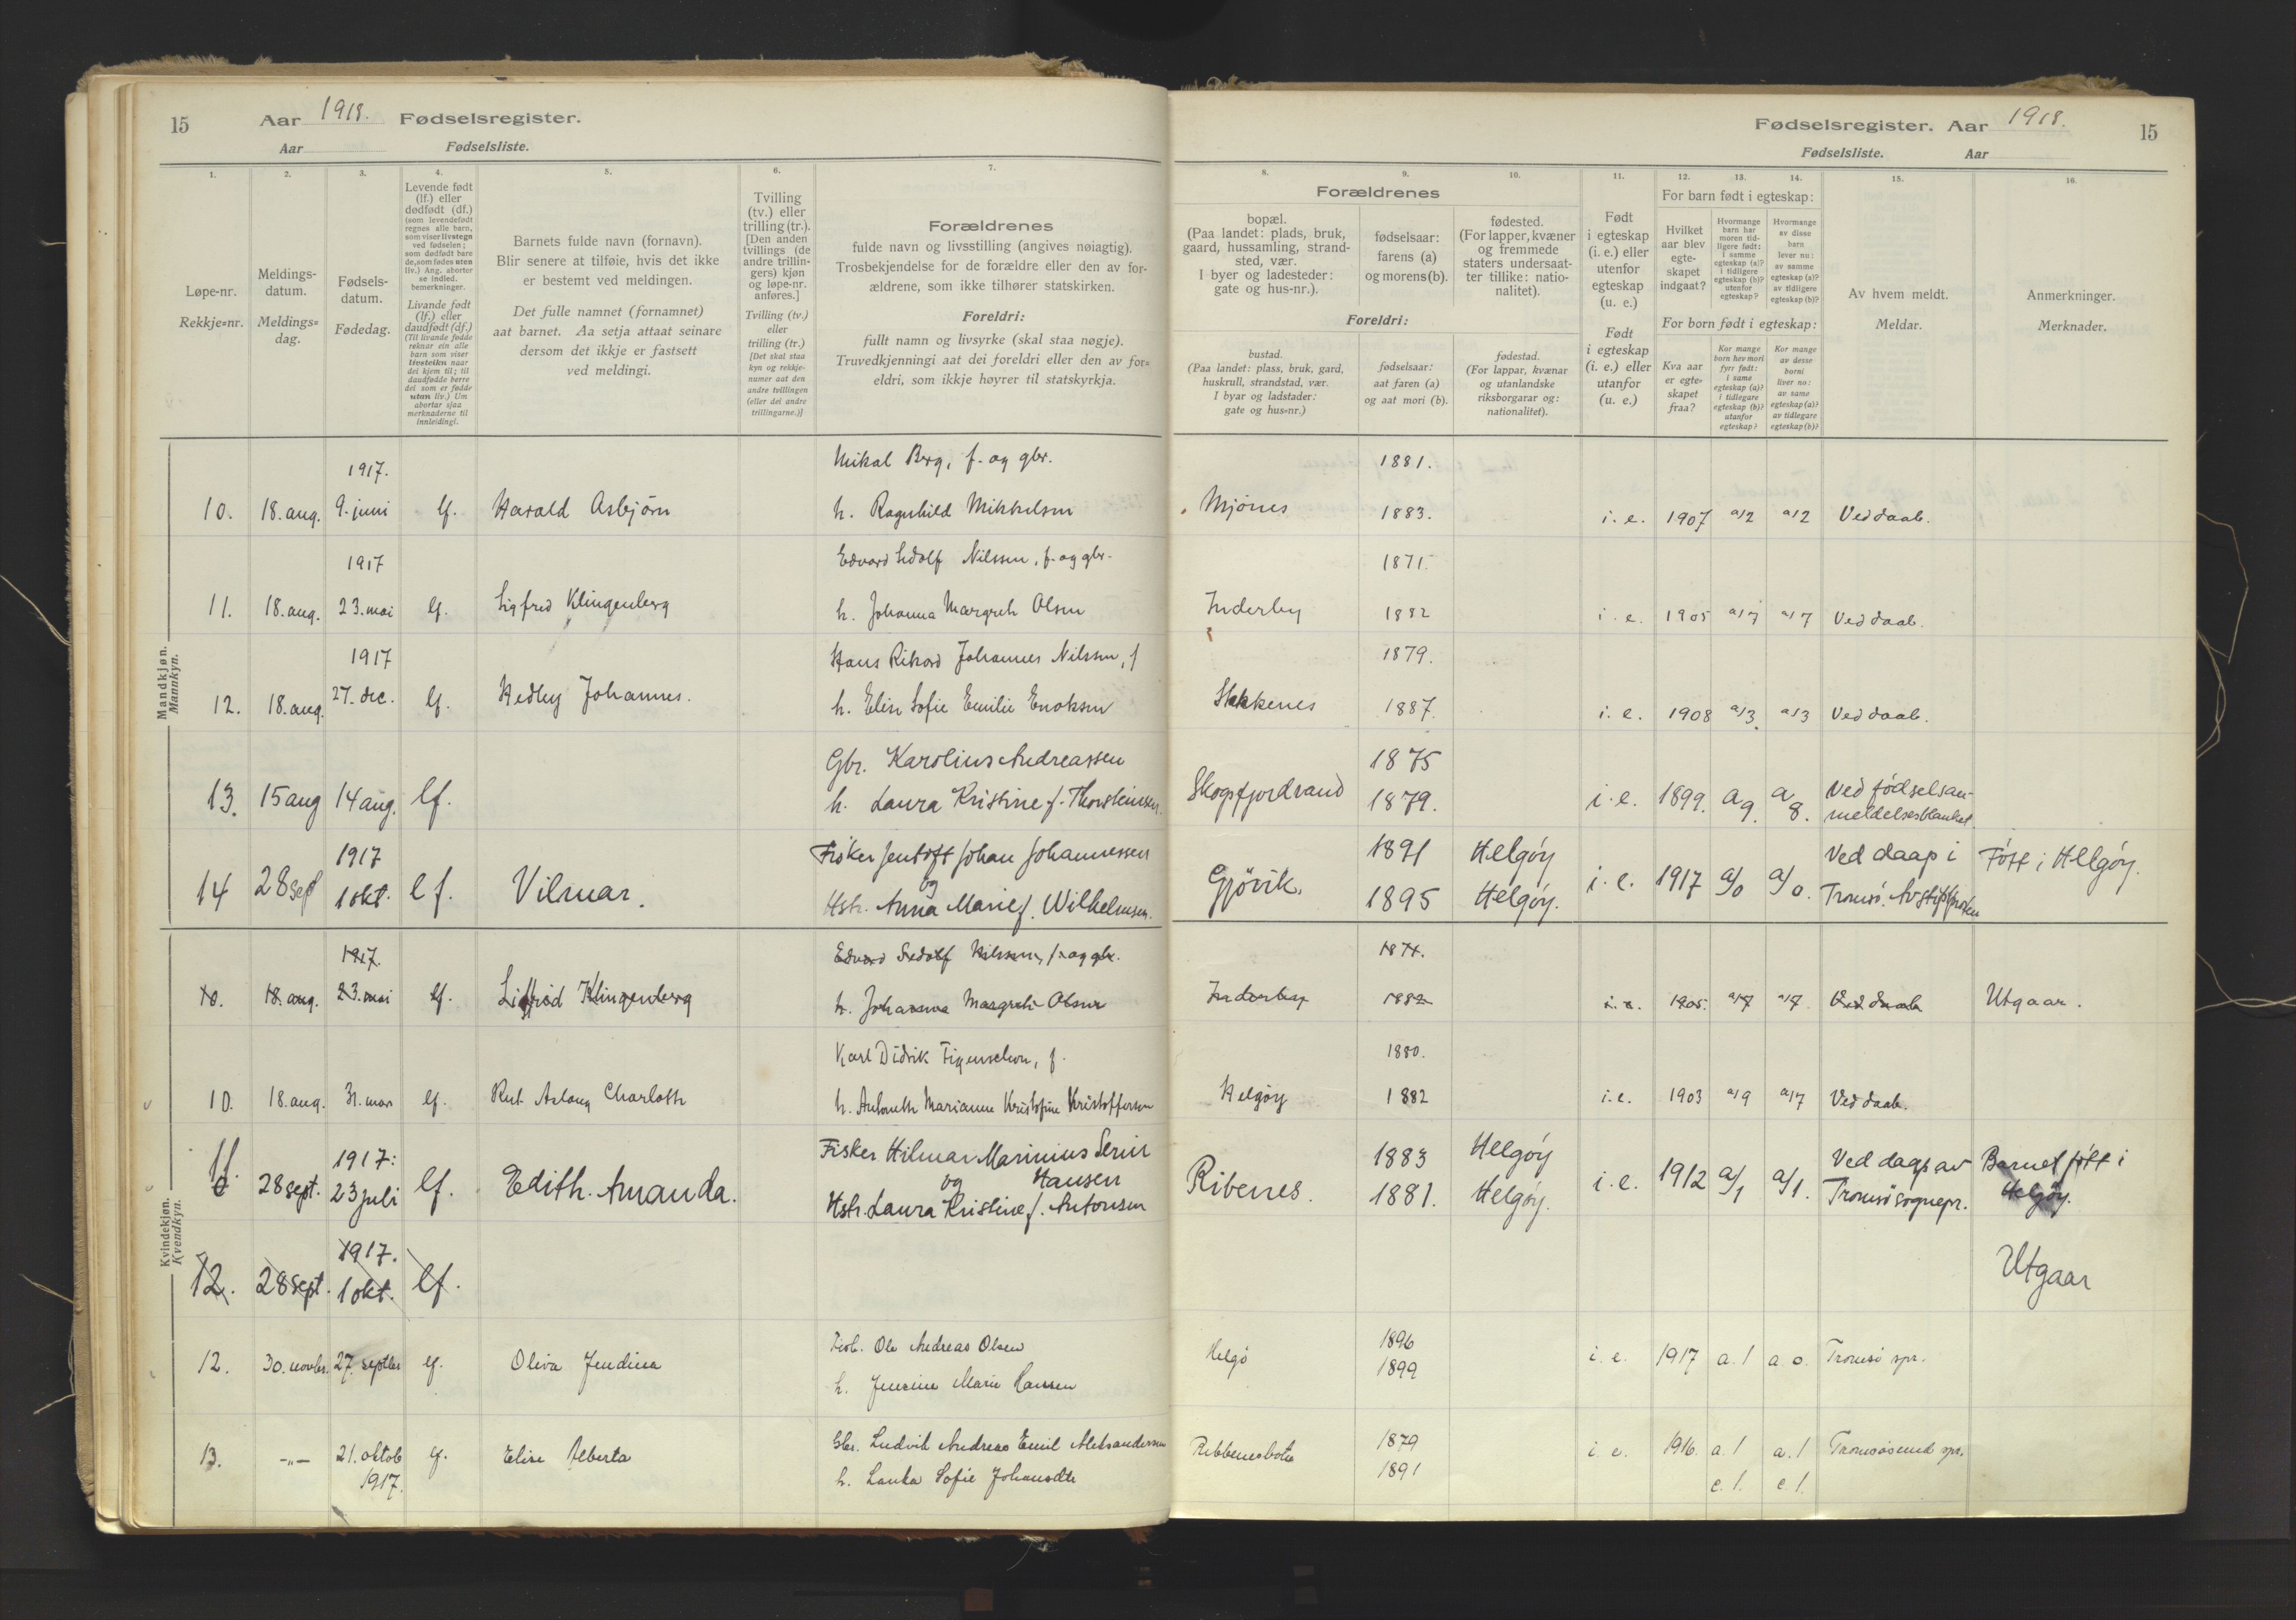 15 Aar 1918. Fødselsregister.
Aar Fødselsliste.
1. 2. 3. 4. 5. 6. 7.
Løpe-nr.
Rekkje=nr.
Meldings-
datum.
Meldings=
dag.
Fødsels-
datum.
Fødedag.
Levende født
(lf.) eller
dødfødt (df.)
(som levendefødt
regnes alle barn,
som viser livstegn
ved fødselen;
som dødfødt bare
de, som fødes uten
liv.) Ang. aborter
se indled.
bemerkninger.
Livande født
(lf.) eller
daudfødt (df.)
(Til livande fødde
reknar ein alle
barn som viser
livsteikn naar
dei kjem til; til
daudfødde berre
dei som er fødde
utan liv.) Um
abortar sjaa
merknaderne til
innleidingi.
Barnets fulde navn (fornavn).
Blir senere at tilføie, hvis det ikke
er bestemt ved meldingen.
Det fulle namnet (fornamnet)
aat barnet. Aa setja attaat seinare
dersom det ikkje er fastsett
ved meldingi.
Tvilling
(tv.) eller
trilling (tr.).
[Den anden
tvillings (de
andre trillin-
gers) kjøn
og løpe-nr.
anføres.]
Tvilling (tv.)
eller
trilling (tr.)
[Det skal staa
kyn og rekkje-
numer aat den
andre tvillingen
(eller dei andre
trillingarne.)]
Forældrenes
fulde navn og livsstilling (angives nøiagtig).
Trosbekjendelse for de forældre eller den av for-
ældrene, som ikke tilhører statskirken.
Foreldri:
fullt namn og livsyrke (skal staa nøgje).
Truvedkjenningi aat dei foreldri eller den av for=
eldri, som ikkje høyrer til statskyrkja.
Mandkjøn.
Mannkyn.
1917. Mikal Berg, f. og gbr.
10. 18. aug. 9. juni lf. Harald Asbjørn h. Ragnhild Mikkelsen
1917 Edvard Sedolf Nilssen, f. og gbr.
11. 18. aug. 23. mai lf. Sigfred Klingenberg h. Johanna Margreth Olsen
1917 Hans Rikard Johannes Nilssen, f
12. 18. aug. 27. dec. lf. Hedley Johannes. h. Elen Sofie Emilie Enoksen
Gbr. Karolius Andreassen
13. 15 aug 14 aug. lf. h. Laura Kristine f. Thorsteinsen.
1917 Fisker Jentoft Johan Johannessen
og
14 28 sept 1 okt. lf. Vilmar. Hstr. Anna Marie f. Wilhelmsen.
Kvindekjøn.
Kvendkyn.
1917. Edvard Sedolf Nilssen, f. og gbr.
10. 18. aug. 23. mai lf. Sigfrid Klingenberg h. Johanna Margreth Olsen
Karl Didrik Figenschou, f.
10. 18. aug. 31. mars lf. Rut Aslaug Charlotte h. Antonette Marianne Kristofine Kristoffersen
1917: Fisker Hilmar Marinius Serin
Hansen
og
11. 28 sept. 23 juli lf. Edith. Amanda. Hstr. Laura Kristine f. Antonsen
1917.
12. 28 sept. 1 okt. lf.
Fisk. Ole Andreas Olsen
12. 30. novbr. 27. septbr lf. Oliva Jendina h. Jensine Marie Hansen
Gbr. Ludvik Andreas Emil Aleksandersen
13. -"- 21. oktob lf. Elise Alberta
1917. h. Lanka Sofie Johansdtr
Fødselsregister. Aar 1918. 15
Fødselsliste. Aar
8. 9. 10. 11. 12. 13. 14. 15. 16.
Forældrenes
bopæl.
(Paa landet: plads, bruk,
gaard, hussamling, strand-
sted, vær.
I byer og ladesteder:
gate og hus-nr.).
fødselsaar:
farens (a)
og morens (b).
fødested.
(For lapper, kvæner
og fremmede
staters undersaat-
ter tillike: natio-
nalitet).
Foreldri:
bustad.
(Paa landet: plass, bruk, gard,
huskrull, strandstad, vær.
I byar og ladstader:
gate og hus=nr.)
fødselsaar:
aat faren (a)
og aat mori (b).
fødestad.
(For lappar, kvænar
og utanlandske
riksborgarar og:
nationalitet).
Født
i egteskap
(i. e.) eller
utenfor
egteskap
(u. e.)
Født
i egteskap
(i. e.) eller
utanfor
(u. e.)
For barn født i egteskap:
Hvilket
aar blev
egte-
skapet
indgaat?
Hvormange
barn har
moren tid-
ligere født:
i samme
egteskap (a)?
i tidligere
egteskap (b)?
utenfor
egteskap?
Hvormange
av disse
barn
lever nu:
av samme
egteskap (a)?
av tidligere
egteskap (b)?
For born født i egteskap:
Kva aar
er egte-
skapet
fraa?
Kor mange
born hev mori
fyrr født:
i same
egteskap (a)?
i tidlegare
egteskap (b)?
utanfor
egteskap?
Kor mange
av desse
borni
liver no:
av same
egteskap (a)?
av tidlegare
egteskap (b)?
Av hvem meldt.
Meldar.
Anmerkninger.
Merknader.
1881.
Mjønes 1883. i. e. 1907 a/2 a/2 Ved daab.
1871.
Inderby 1882 i. e. 1905 a/7 a/7 Ved daab.
1879.
Stakkenes 1887. i. e. 1908 a/3. a/3 Ved daab.
1875
Skogsfjordvand 1879. i. e. 1899. a 9. a 8. Ved fødselsan-
meldelsesblanket.
1891 Helgøy Ved daap i Født i Helgøy.
Gjövik. 1895 Helgøy. i. e. 1917 a/0 a/0. Tromsö.
1871.
Inderby 1882 i. e. 1905. a/7 a/7 Ved daab Utgaar.
1880.
Helgøy 1882 i. e. 1903 a/9 a/7 Ved daab.
1883 Helgøy Ved daap av Barnet født i
Ribenes. 1881. Helgøy. i. e. 1912 a/1 a/1. Tromsö sognepr. Helgøy.
Utgaar
1896
Helgö 1899 i. e. 1917 a. 1 a. 0. Tromsö spr.
1879
Ribbenesbotn 1891 i. e. 1916. a. 1 a. 1 Tromsøsund spr.
e. 1. e. 1.